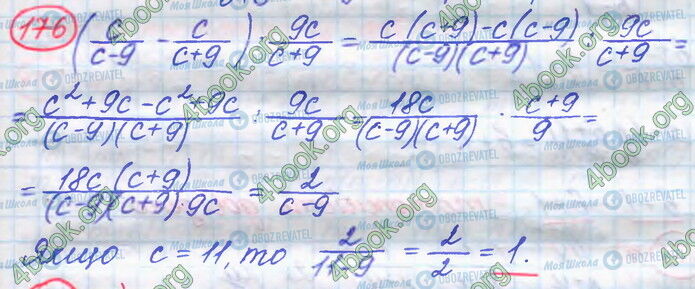 176 (c/(c-9) - c/(c+9)) : 9c/(c+9) = (c(c+9)-c(c-9))/((c-9)(c+9)) : 9c/(c+9) =
= (c²+9c-c²+9c)/((c-9)(c+9)) : 9c/(c+9) = 18c/((c-9)(c+9)) · (c+9)/9 =
= 18c(c+9)/((c-9)(c+9)·9c) = 2/(c-9)
Якщо c = 11, то 2/(11-9) = 2/2 = 1.
4book.org
Моя Школа OBOZREVATEL